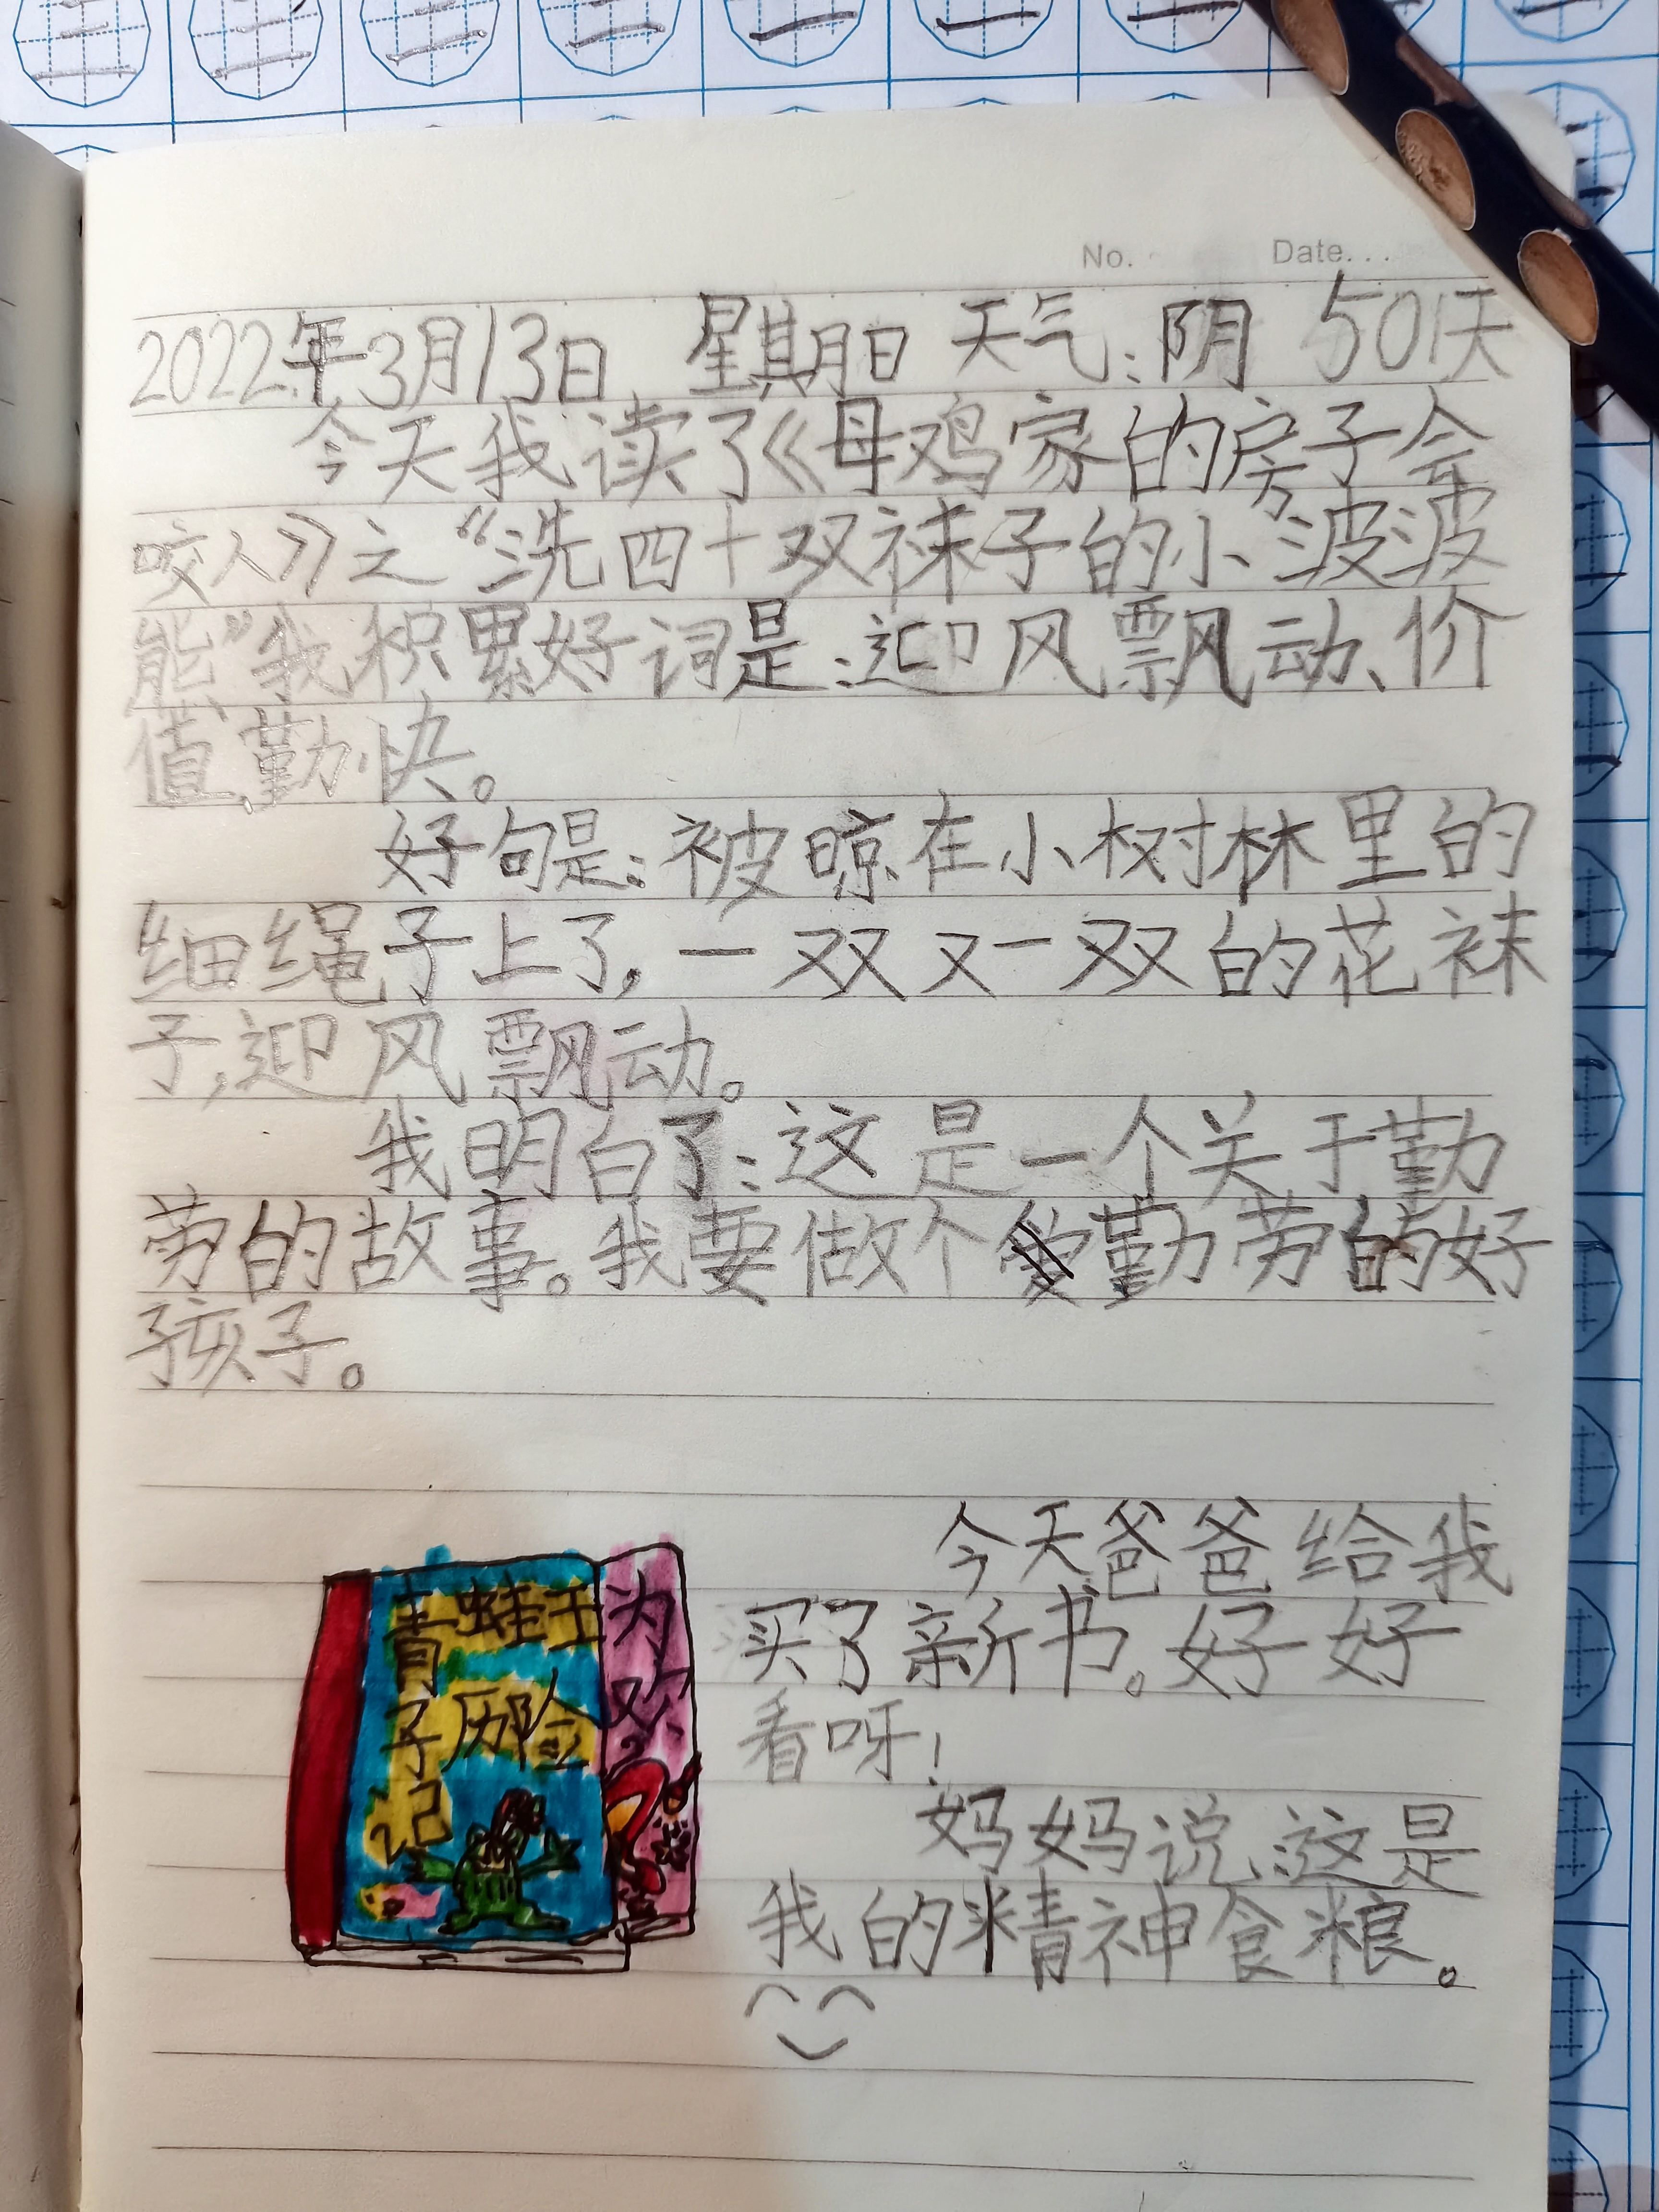 No. Date...
2022年3月13日 星期日 天气:阴 501天
今天我读了《母鸡家的房子会
咬人》之“洗四十双袜子的小波波
熊”我积累好词是:迎风飘动、价
值、勤快。
好句是:被晾在小树林里的
细绳子上了,一双又一双的花袜
子,迎风飘动。
我明白了:这是一个关于勤
劳的故事。我要做个勤劳的好
孩子。
今天爸爸给我
买了新书。好好
看呀!
妈妈说:这是
我的精神食粮。
青蛙王
子历险
记
为